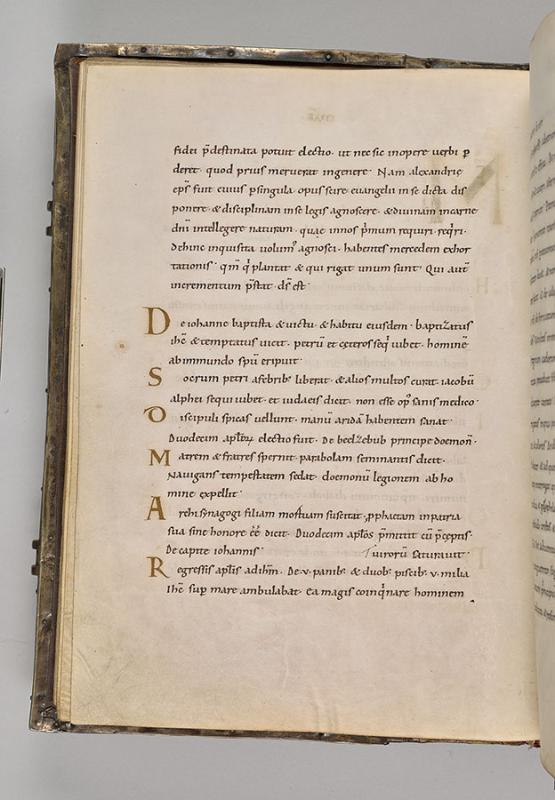 fidei p̄destinata potuit electio · ut nec sic inopere verbi p
deret · quod prius meruerat ingenere · Nam alexandrię
ep̄s fuit cuius p̄singula · opus scire euangelii in se dicta dis
ponere · & disciplinam in se legis agnoscere · & diuinam incarne
dn̄i intellegere naturam · quae innos p̄mum requiri ·
Dehinc inquisita volum᾽ agnosci · habentes mercedem exhor
tationis · qm̄ q̇ plantat & qui rigat unum sunt · Qui aut̄
incrementum p̄stat · dſ̄ est ·
De iohanne baptista & uictu · & habitu eiusdem · baptizatus
ih̄c & temptatus uicit · petrū et ceteros seq̇ iubet · hominē
ab immundo spū eripuit ·
Socrum petri afebrib᾽ liberat · & alios multos curat · iacobū
alphei sequi iubet · et iudaeis dicit · non esse op᾽ sanis medico ·
Discipuli spicas uellunt · manū aridā habentem sanat ·
Duodecim electio fuit · De beelzebub principe doemon̄ ·
Matrem & fratres spernit · parabolam seminantis dicit ·
Nauigans tempestatem sedat · doemonū legionem ab ho
mine expellit ·
Archisynagogi filiam mortuam suscitat · p̱phaetam inpatria
sua sine honore eē dicit · Duodecim apl̄os p̄mittit cū p̄ceptis ·
De capite iohannis · / uirorū saturauit ·
Regressis apl̄is ad ih̄m · De · v · panib᾽ & duob᾽ piscib᾽ · v · milia
Ih̄c sup̄ mare ambulabat · Ea magis coinq̇nare hominem